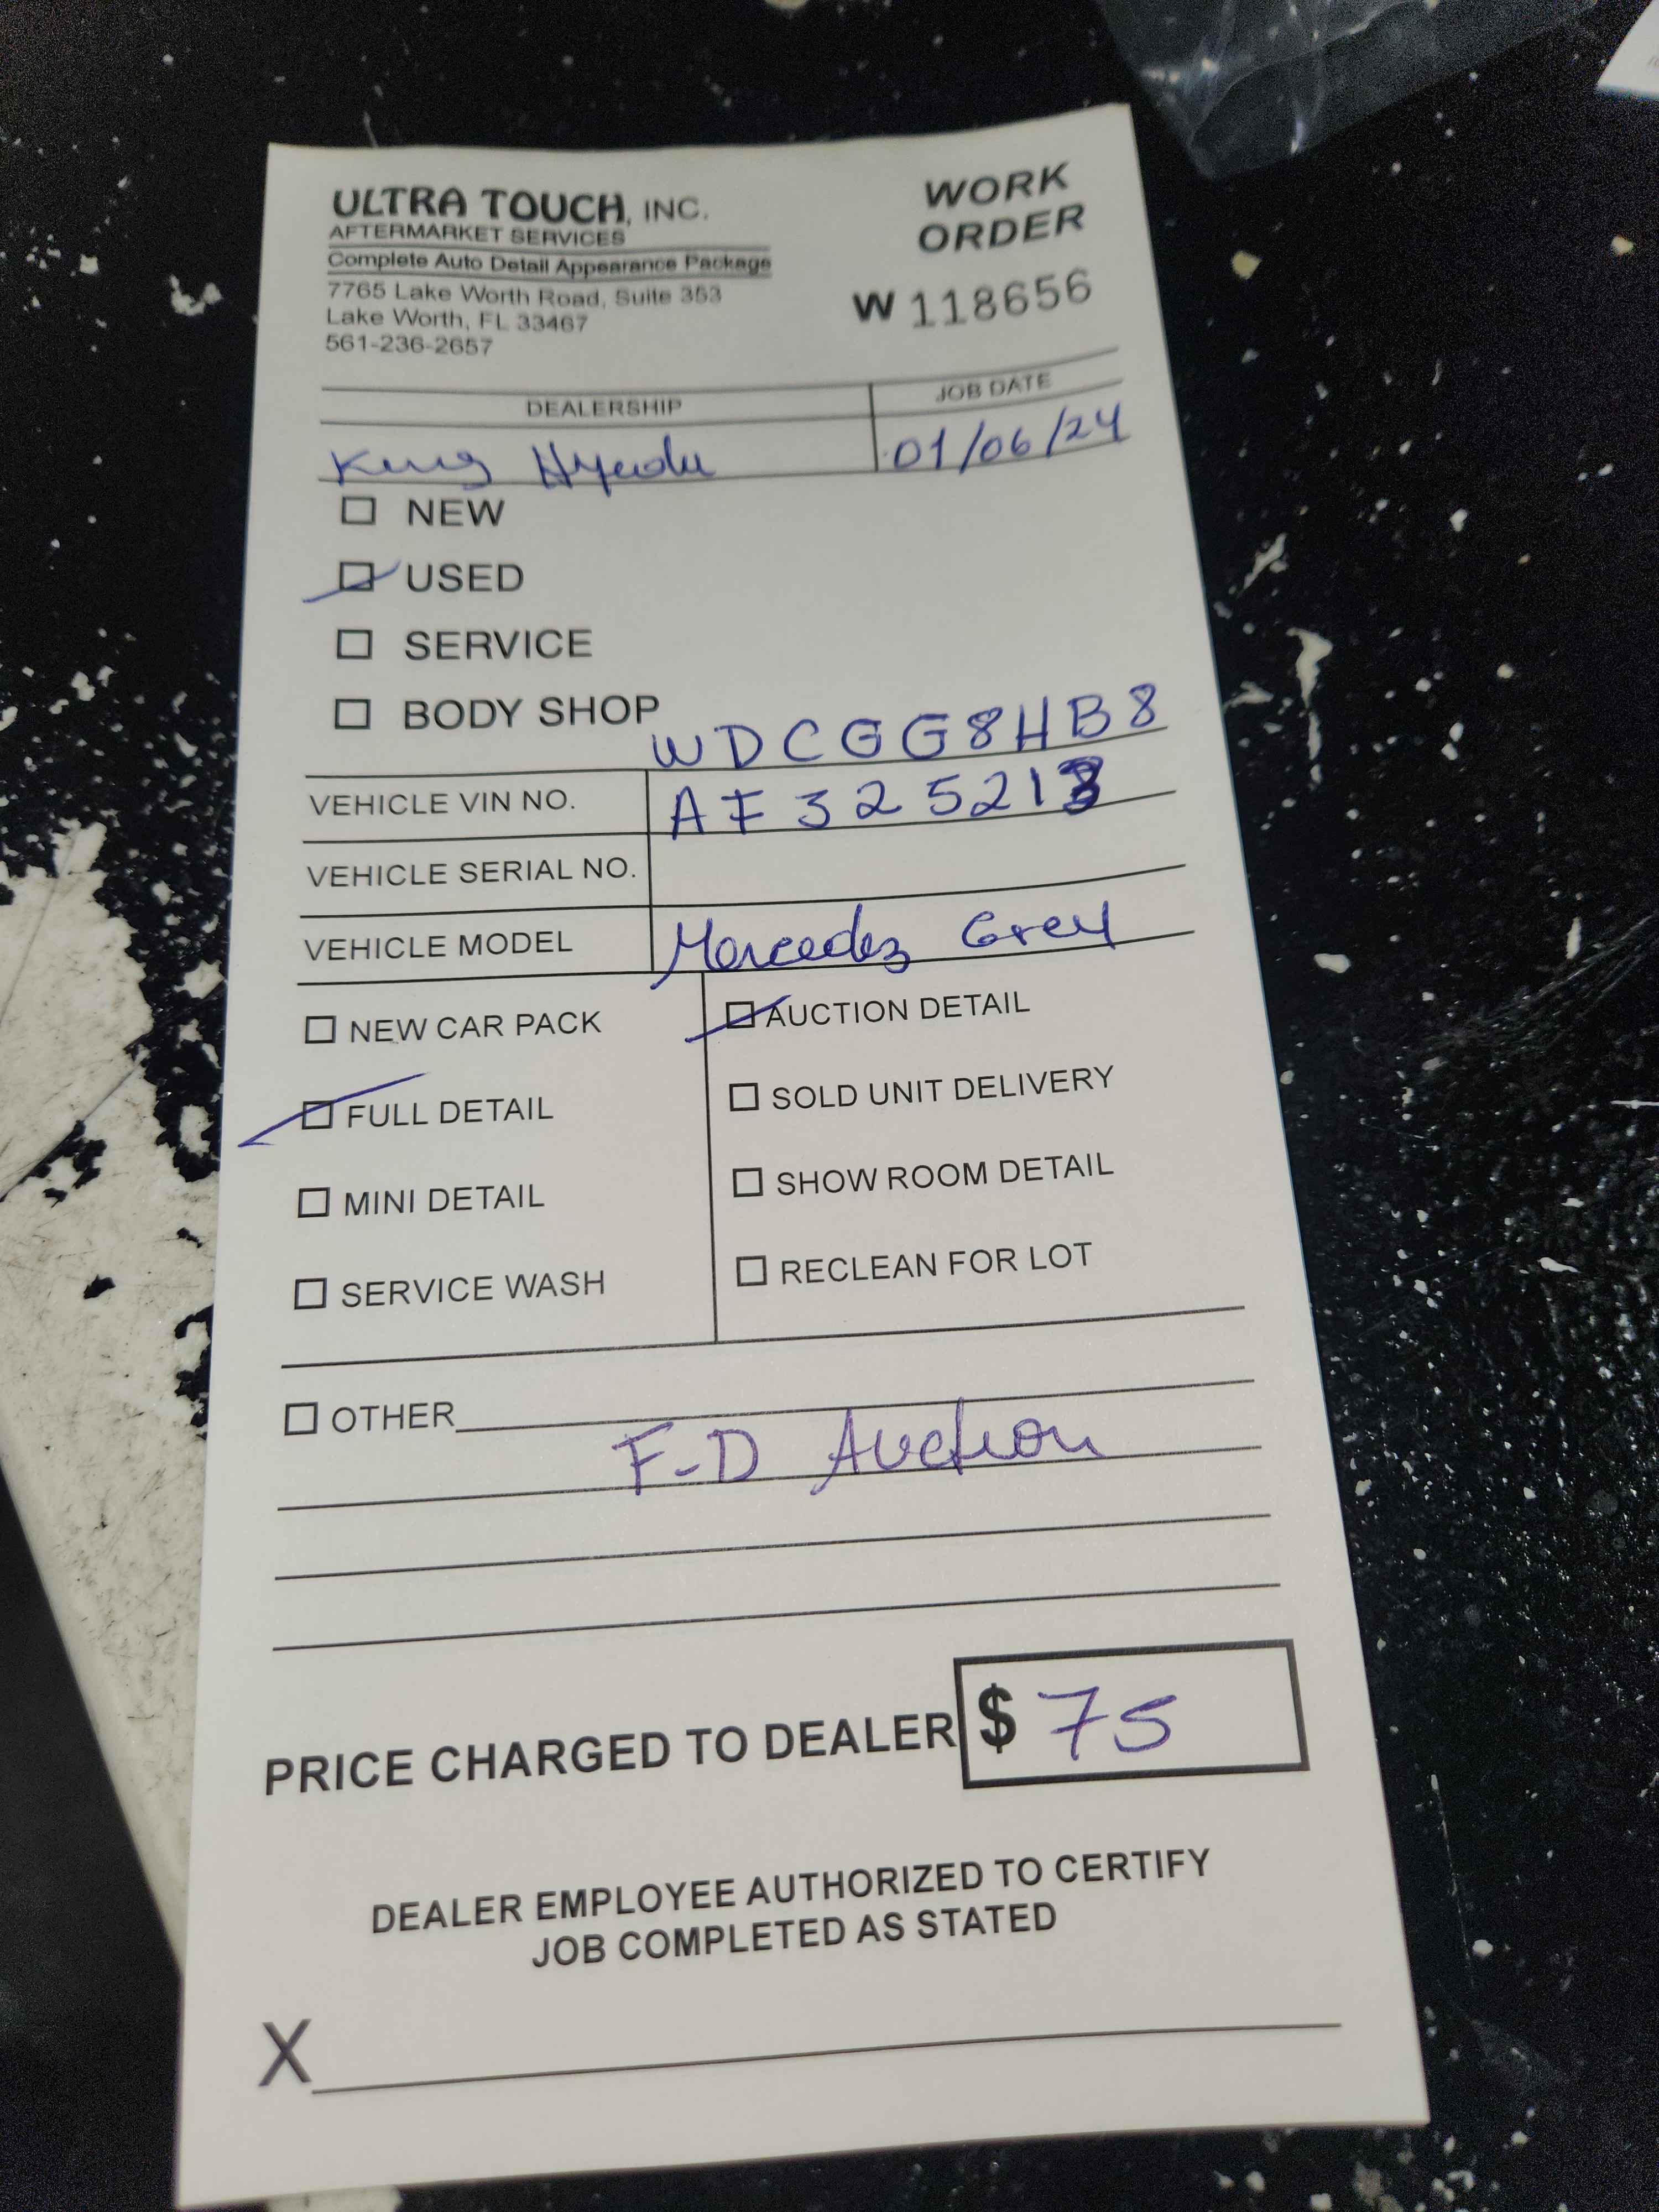 ULTRA TOUCH, INC.
AFTERMARKET SERVICES
Complete Auto Detail Appearance Package
7765 Lake Worth Road, Suite 353
Lake Worth, FL 33467
561-236-2657
WORK
ORDER
W 118656
DEALERSHIP
JOB DATE
King
01/06/24
NEW
USED
SERVICE
BODY SHOP
WDCGG8HB8
VEHICLE VIN NO. AF325213
VEHICLE SERIAL NO.
VEHICLE MODEL Mercedez Grey
NEW CAR PACK
FULL DETAIL
MINI DETAIL
SERVICE WASH
AUCTION DETAIL
SOLD UNIT DELIVERY
SHOW ROOM DETAIL
RECLEAN FOR LOT
OTHER
F-D Auction
PRICE CHARGED TO DEALER $ 75
DEALER EMPLOYEE AUTHORIZED TO CERTIFY
JOB COMPLETED AS STATED
X